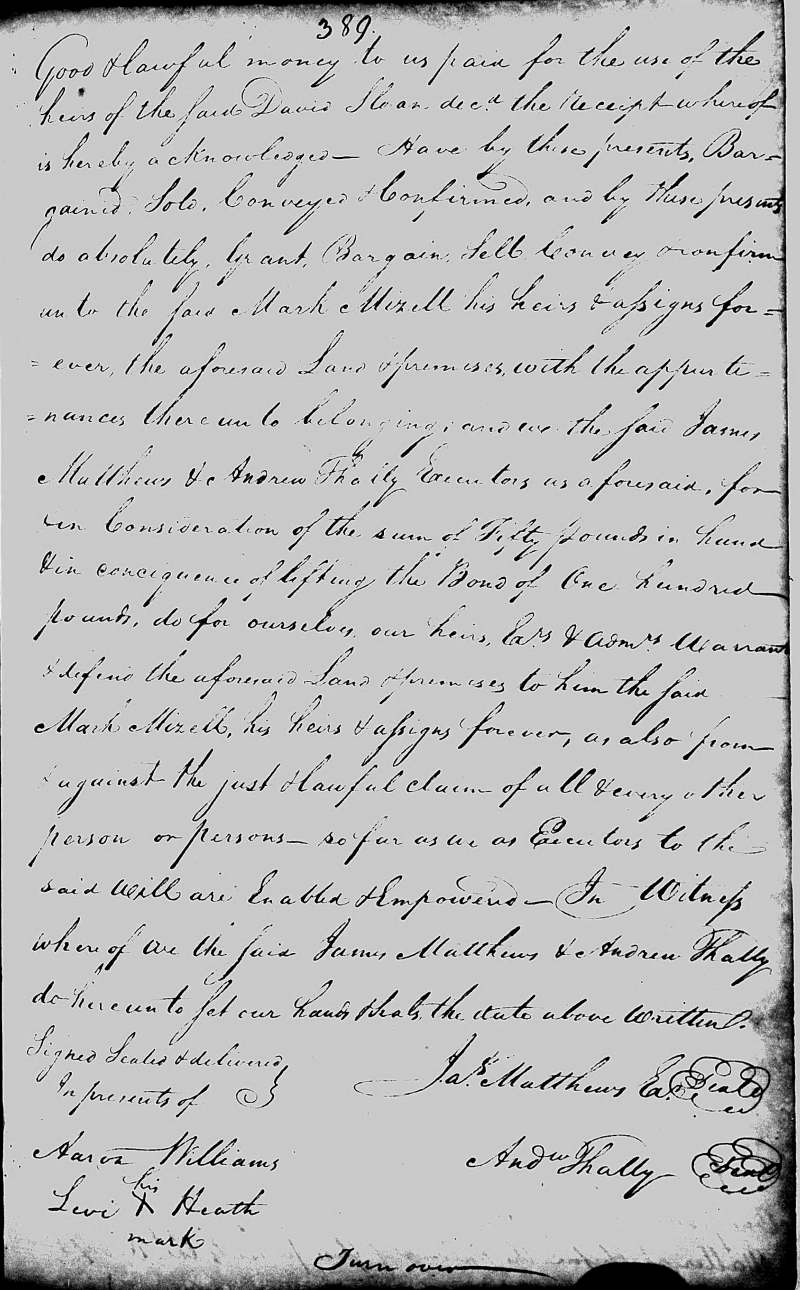 389.
Good & lawful money to us paid for the use of the
heirs of the said David Sloan dec.d the Receipt whereof
is hereby acknowledged— Have by these presents, Bar=
gained, Sold, Conveyed & Confirmed, and by these presents
do absolutely, Grant, Bargain, Sell Convey & confirm
unto the said Mark Mizell his heirs & assigns for=
=ever, the aforesaid Land & premises, with the appurte=
=nances thereunto belonging; and we the said James
Matthews & Andrew Thally Executors as aforesaid, for
in Consideration of the sum of Fifty pounds in hand
& in conciquence of lifting the Bond of One hundred
pounds, do for ourselves, our heirs, Exrs & admrs Warrant
& defend the aforesaid Land & premises to him the said
Mark Mizell, his heirs & assigns forever, as also from
& against the just & lawful claim of all & every other
person or persons— so far as we as Executors to the
said Will are Enabled & Empowered— In Witness
whereof we the said James Matthews & Andrew Thally
do hereunto set our hands & seals, the date above written.
Signed Sealed & delivered
In presents of
Jas. Matthews Ex. Seal
Aaron Williams
Andw Thally Seal
his
Levi X Heath
mark
Turn over